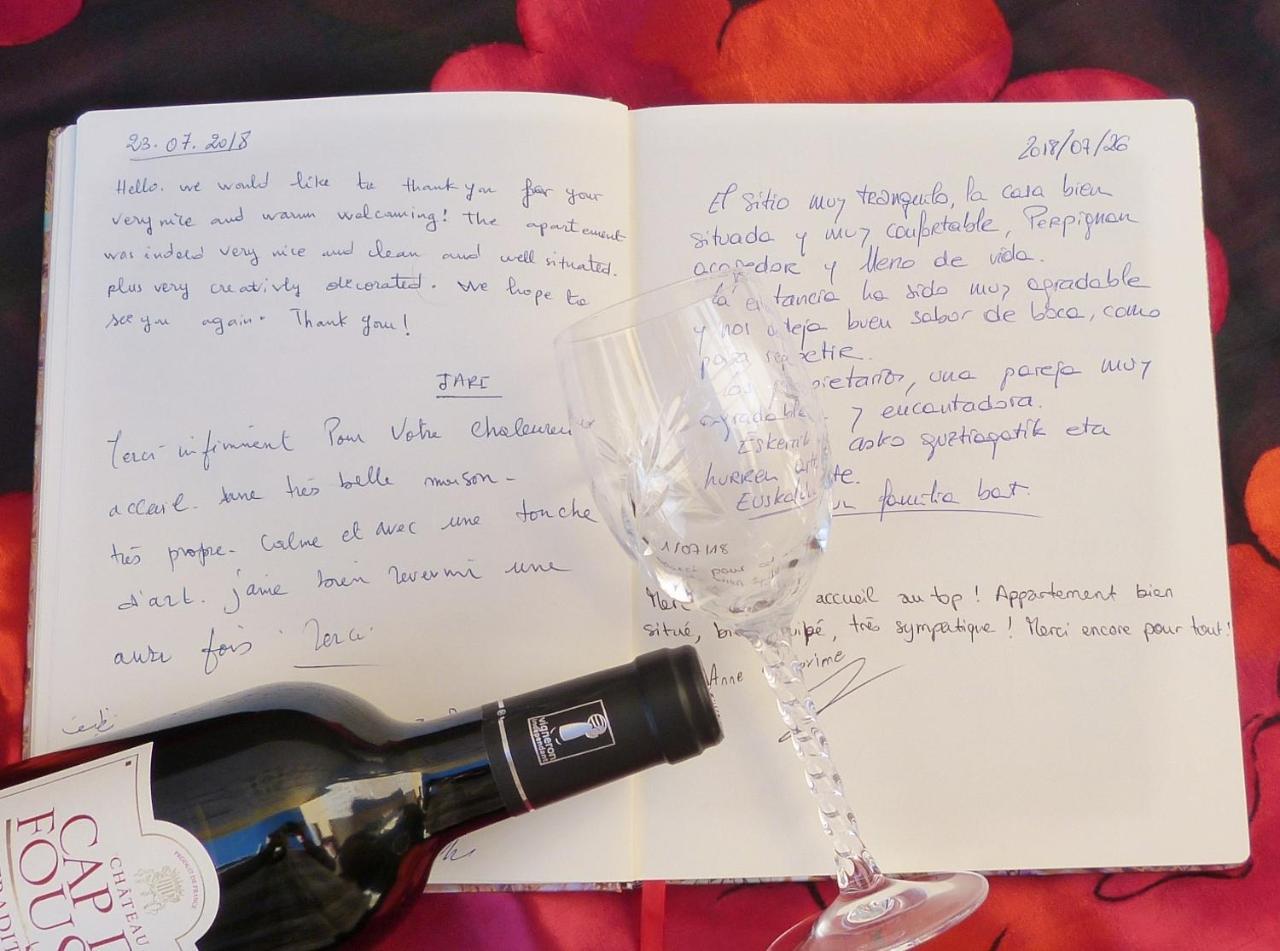 23.07.2018
Hello. we would like to thank you for your
very nice and warm welcoming! The apartement
was indeed very nice and clean and well situated.
plus very creativly decorated. We hope to
see you again. Thank you!
JARI
Merci infiniment Pour Votre
accueil. une très belle maison -
très propre. Calme et avec une touche
d'art. j'aime bien revenir une
autre fois. Merci
2018/07/26
El sitio muy tranquilo, la casa bien
situada y muy confortable, Perpignan
acogedor y lleno de vida.
la estancia ha sido muy agradable
y nos deja buen sabor de boca, como
para repetir.
los propietarios, una pareja muy
agradable y encantadora.
Eskerrik asko guztiagatik eta
hurren arte.
familia bat.
1/07/18
Merci accueil au top! Appartement bien
situé, bien équipé, très sympatique! Merci encore pour tout!
Anne
vigneron
indépendant
CHÂTEAU
CAP
FOUS
TRADIT